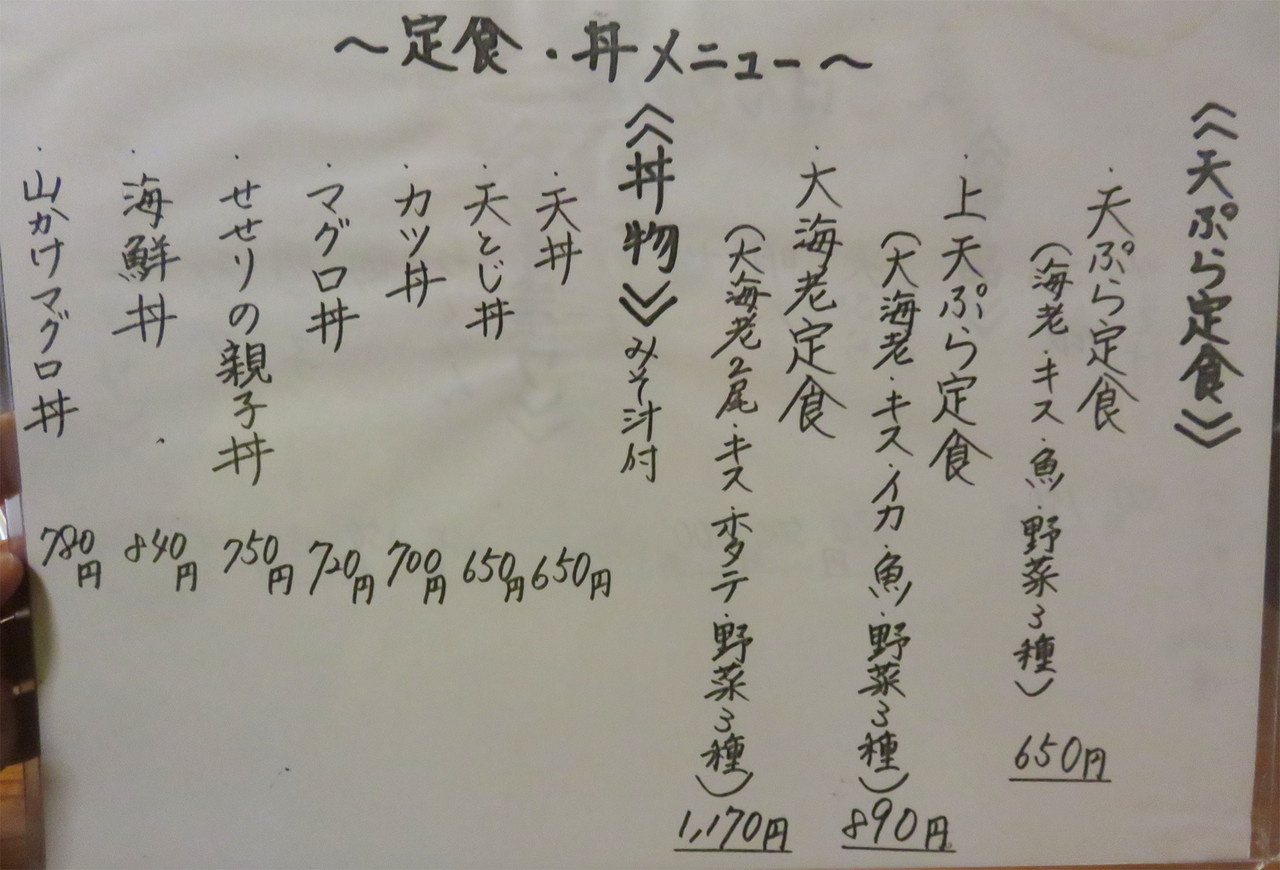 ～定食・丼メニュー～
《天ぷら定食》
・天ぷら定食
(海老・キス・魚・野菜3種)
650円
・上天ぷら定食
(大海老・キス・イカ・魚・野菜3種)
890円
・大海老定食
(大海老2尾・キス・ホタテ・野菜3種)
1,170円
《丼物》みそ汁付
・天丼 650円
・天とじ丼 650円
・カツ丼 700円
・マグロ丼 720円
・せせりの親子丼 750円
・海鮮丼 840円
・山かけマグロ丼 780円